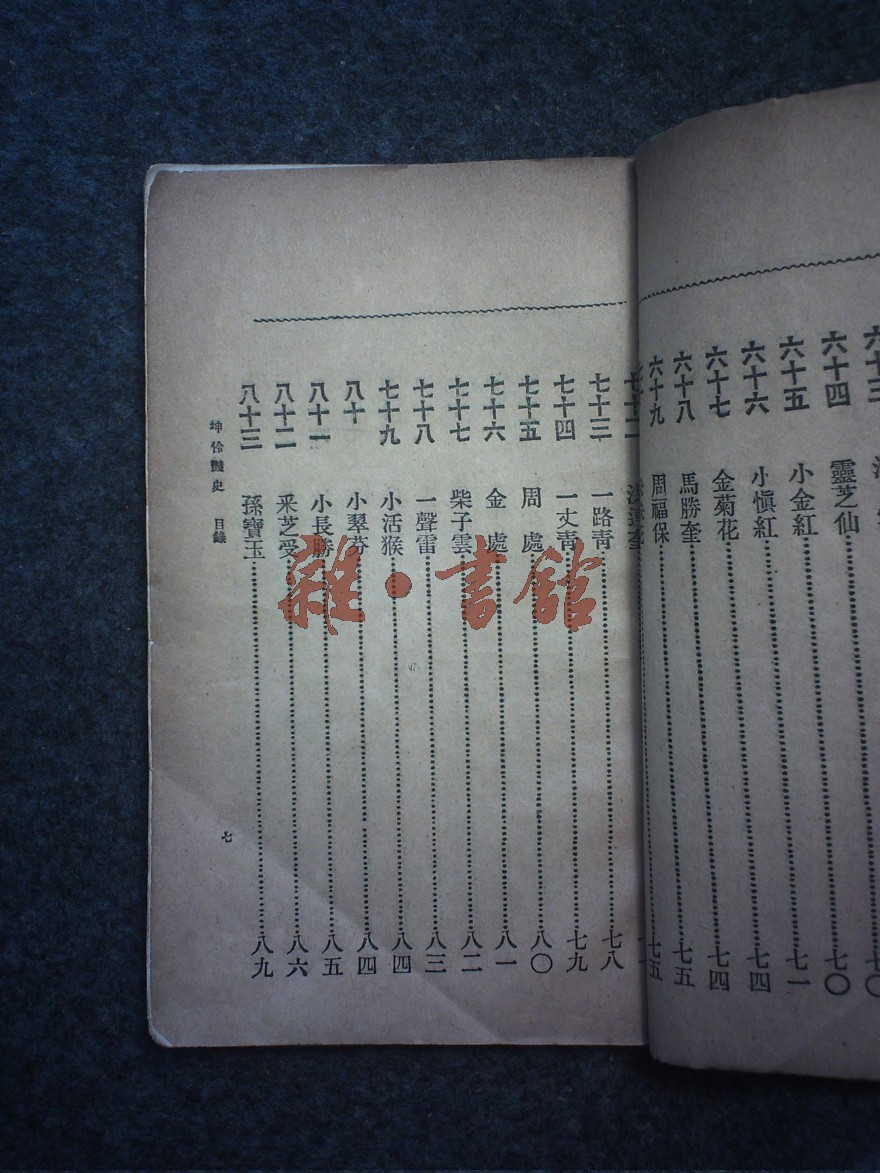 六十四 靈芝仙 七〇
六十五 小金紅 七一
六十六 小愼紅 七四
六十七 金菊花 七四
六十八 馬勝奎 七五
六十九 周福保 七五
七十三 一路靑 七八
七十四 一丈靑 七九
七十五 周處 八〇
七十六 金處 八一
七十七 柴子雲 八二
七十八 一聲雷 八三
七十九 小活猴 八四
八十 小翠芬 八四
八十一 小長勝 八五
八十二 采芝受 八六
八十三 孫寶玉 八九
坤伶豔史 目錄 七
雜·書館